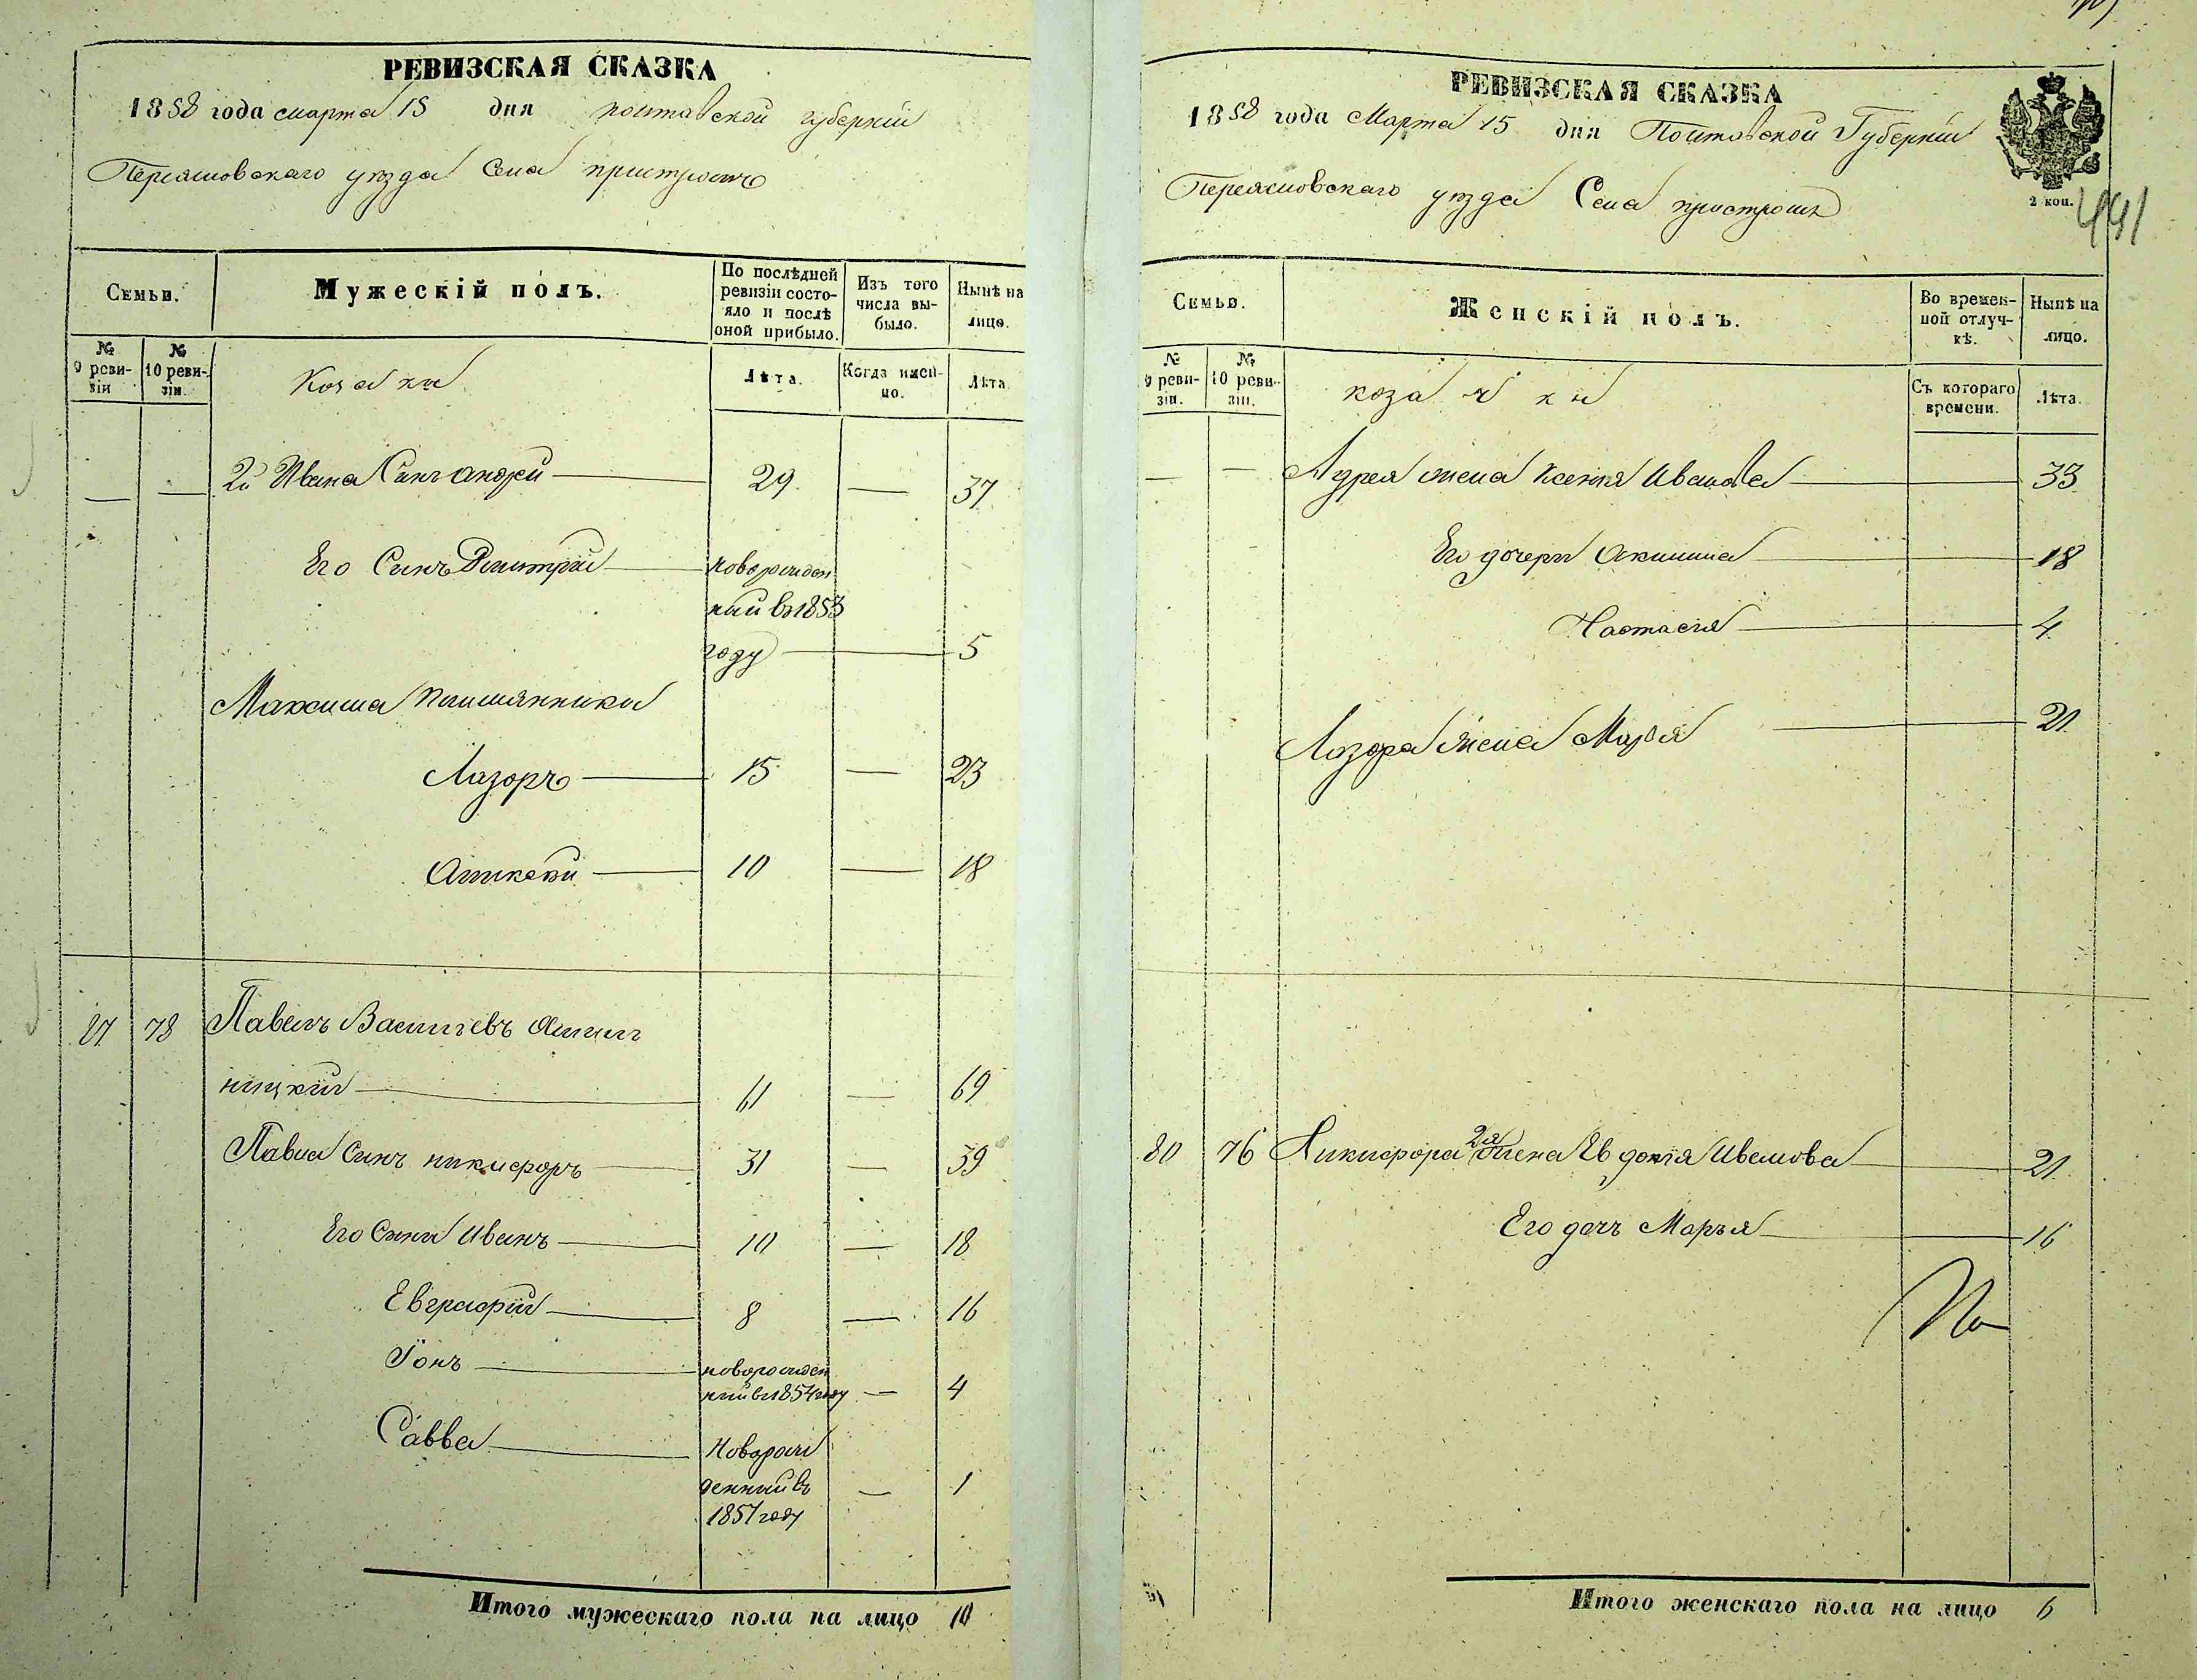 РЕВИЗСКАЯ СКАЗКА
1858 года марта 15 дня полтавской губерніи
Переясловскаго уѣзда Села пристромъ
Семьи.
Мужескій полъ.
По послѣдней ревизіи состояло и послѣ оной прибыло.
Изъ того числа выбыло.
Нынѣ на лицо.
№ 9 ревизіи
№ 10 ревизіи.
Козаки
Лѣта.
Когда именно.
Лѣта
2й Ивана Синъ андрей 29 — 37
Его Синъ Дмитрій новорожден
ный въ 1853
году 5
Максима племянники
Лазоръ 15 — 23
Алексѣй 10 — 18
27 78 Павелъ Васильевъ
ницкій 61 — 69
Павла Синъ никифоръ 31 — 39
Его Сини Иванъ 10 — 18
Евграфій 8 — 16
Іонъ новорожден
ный въ 1854 году — 4
Савва Новорож
денный въ — 1
1857 году
Итого мужескаго пола на лицо 10
РЕВИЗСКАЯ СКАЗКА
1858 года Марта 15 дня Полтавской Губерніи
Переясловскаго уѣзда Села пристромъ
2 коп.
441
Семьи.
Женскій полъ.
Во временной отлучкѣ.
Нынѣ на лицо.
№ 9 ревизіи.
№ 10 ревизіи.
козачки
Съ котораго времени.
Лѣта.
— — Андрея жена Ксенія Иванова 33
Его дочери Акилина 18
Настасія 4
Лазора жена Марія 21
80 76 Никифора 2я жена Евдокія Иванова 21
Его дочь Марья 16
Итого женскаго пола на лицо 6